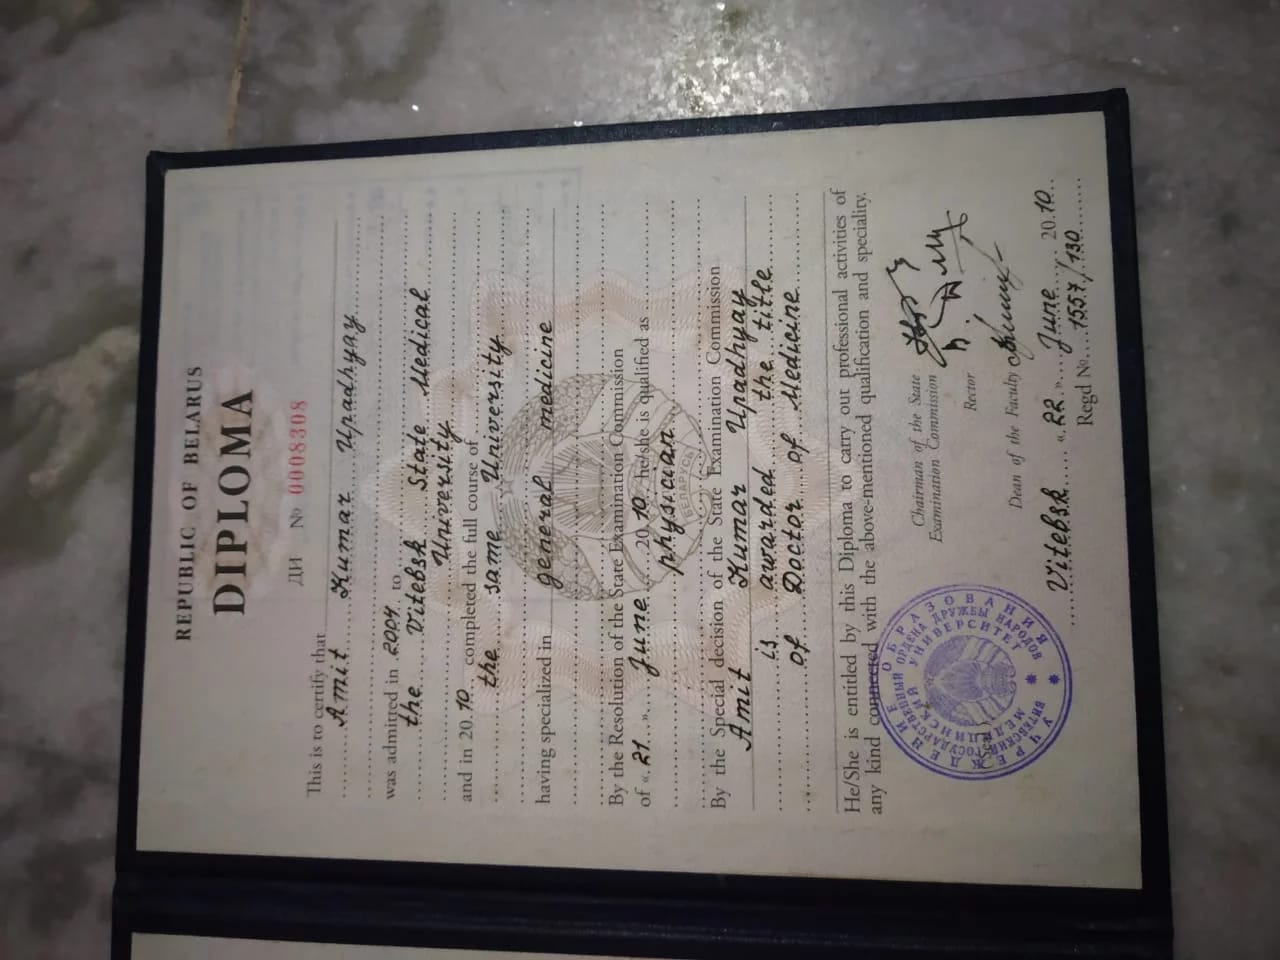 REPUBLIC OF BELARUS
DIPLOMA
ДИ № 0008308
This is to certify that
Amit Kumar Upadhyay
was admitted in 2004 to
the Vitebsk State Medical
University
and in 2010 completed the full course of
the same University
having specialized in general medicine
By the Resolution of the State Examination Commission
of «21» June 2010 he/she is qualified as
physician
By the Special decision of the State Examination Commission
Amit Kumar Upadhyay
is awarded the title
of Doctor of Medicine
He/She is entitled by this Diploma to carry out professional activities of
any kind connected with the above-mentioned qualification and speciality.
Chairman of the State
Examination Commission
Rector
Dean of the Faculty
Vitebsk «22» June 2010
Regd №. 1557/130
УЧРЕЖДЕНИЕ ОБРАЗОВАНИЯ
ВИТЕБСКИЙ ГОСУДАРСТВЕННЫЙ ОРДЕНА ДРУЖБЫ НАРОДОВ
МЕДИЦИНСКИЙ УНИВЕРСИТЕТ
БЕЛАРУСЬ